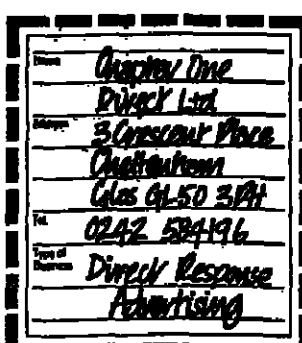 Name Chapter One
Direct Ltd
Address 3 Crescent Place
Cheltenham
Glos GL50 3PH
Tel. 0242 584196
Type of Business Direct Response
Advertising